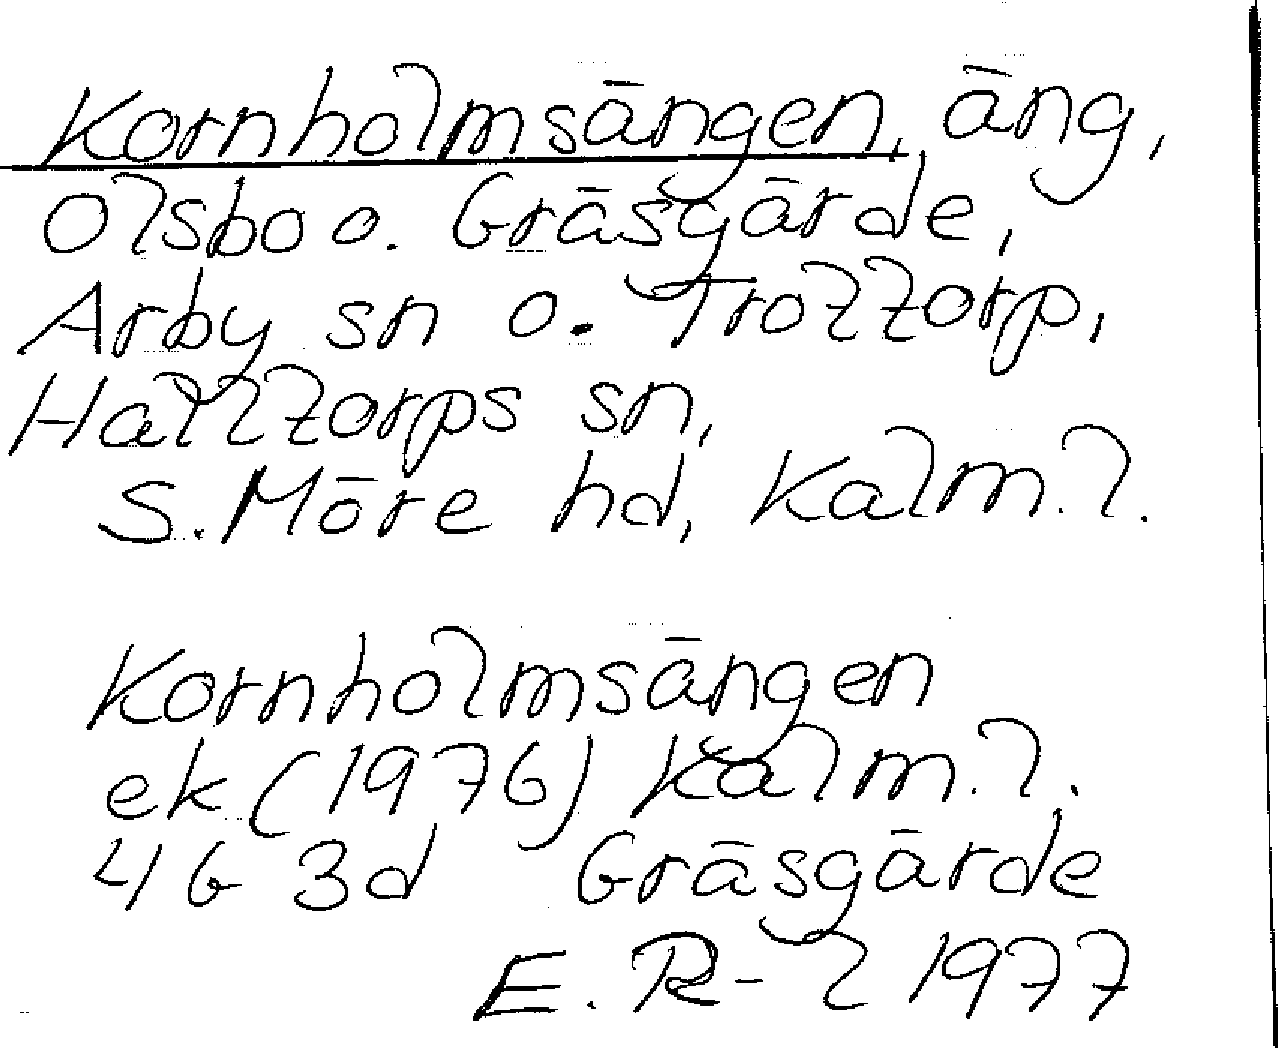 Kornholmsängen, äng,
Olsbo o. Gräsgärde,
Arby sn o. Troltorp,
Halltorps sn,
S. Möre hd, Kalm.l.
Kornholmsängen
ek (1976) Kalm.l.
4 G 3d Gräsgärde
E. R-l 1977